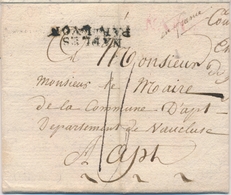 NAPLES
PAR LYON
A Monsieur
Monsieur le Maire
de la Commune D'apt
Departement de Vaucluse
A Apt